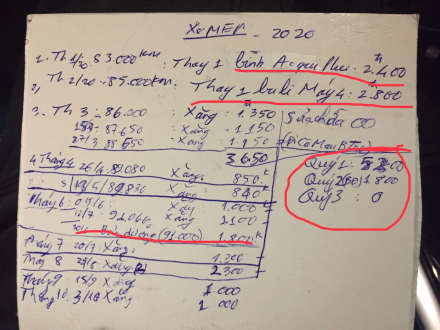 Xe MER - 2020
1. Th 1/20 83.000km : Thay 1 bình Acquy Phu: 2.400
2, Th 2/20 - 85.000km: Thay 1 buli Máy 4: 2.800
3. Th 3 - 86.000 : Xăng : 1.350
87.650 : Xăng : 1.150
27/3 88.650 : Xăng : 1.150
3650
Sửa chữa
4 Tháng 4 26/4: 89.080 Xăng: 850k
5 19/5/89.830 Xăng : 840k
Tháng 6: 09/6: Xăng 1.000k
12/7: Xăng 1100
Bảo dưỡng (91.000) 1.800k
Tháng 7 20/7: Xăng: 1.200
Tháng 8 Xăng 2.300
Tháng 9: 15/9 Xăng : 1.000
Tháng 10: 3/10 Xăng 1 000
Quý 1: 00
Quý 1.800
Quý 3 : 0